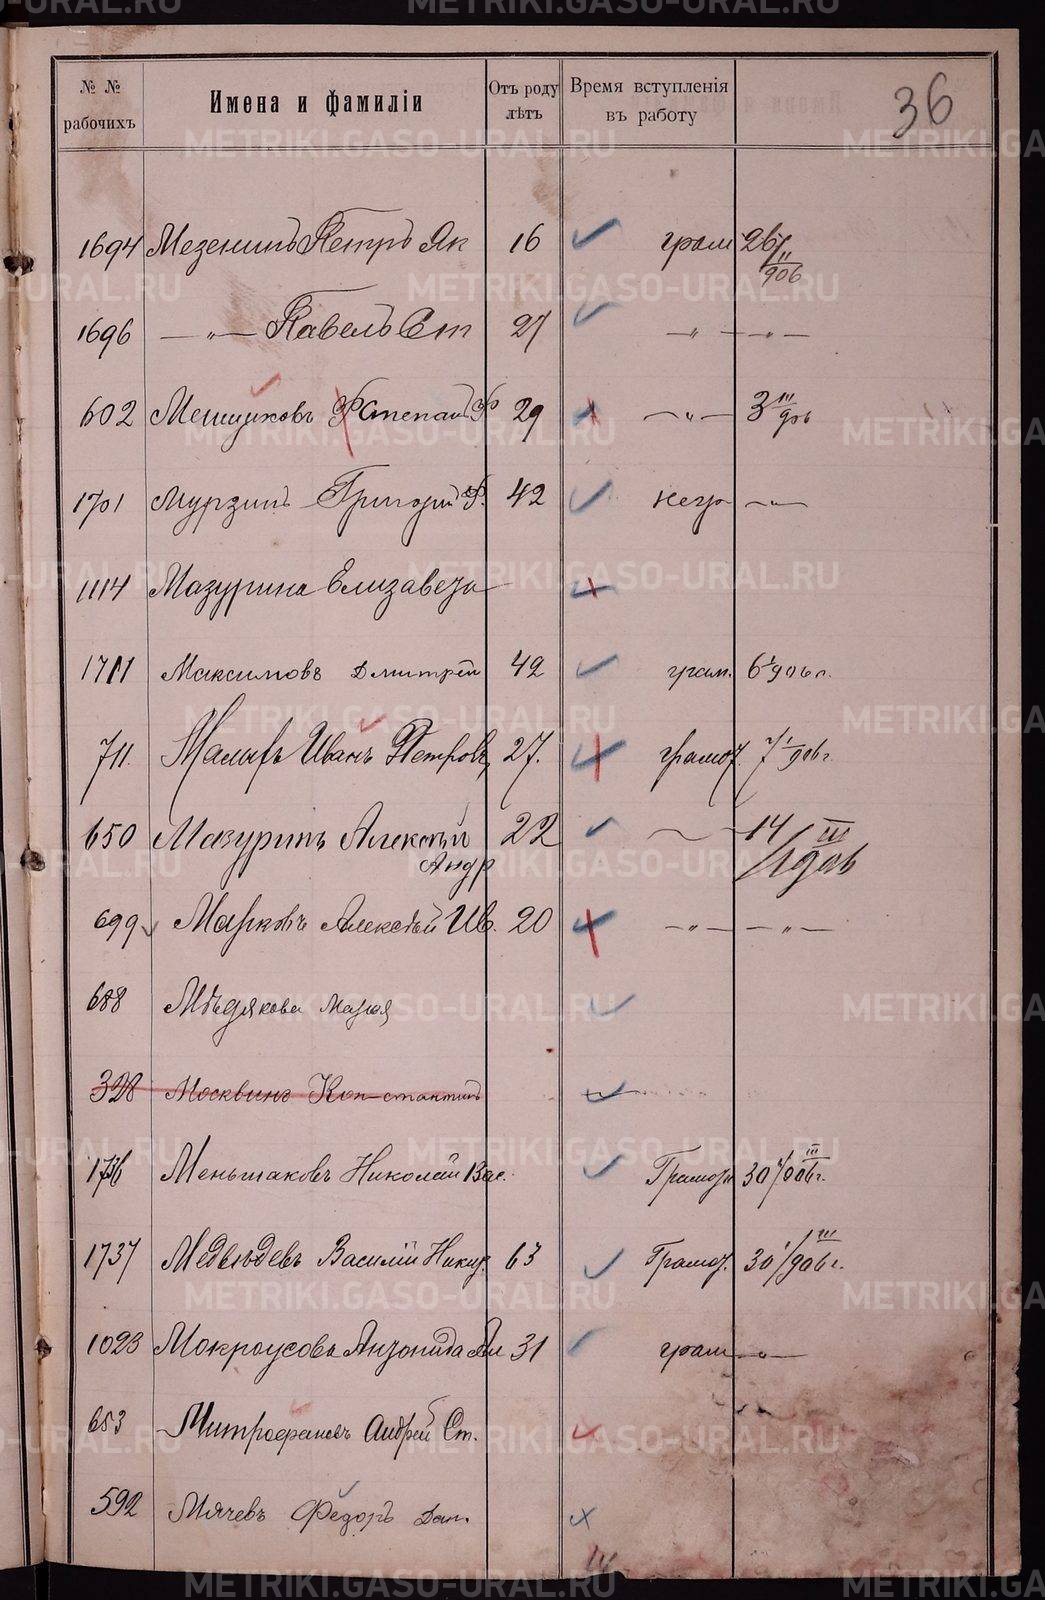 № № рабочихъ Имена и фамиліи Отъ роду лѣтъ Время вступленія въ работу 36
1694 Мезенинъ Петръ Як 16 грам 26/II 906
1696 —„— Павелъ Ст 27 —„— —„—
602 Меншиковъ Степанъ Ф 29 —„— 3 III 906
1701 Мурзинъ Григорій Ф. 42 негр —„—
1114 Мазурина Елизавета
1711 Максимовъ Дмитрій 42 грам. 6 I 906 г.
711. Малыхъ Иванъ Петровъ 27. грамот. 7 I 906 г.
650 Мазуринъ Алексѣй 22 — 14/III 1906
Андр
699 Марковъ Алексѣй Ив. 20 —„— —„—
688 Мѣдякова Марія
328 Москвинъ Константинъ
1736 Меньшаковъ Николай Вас. Грамотн 30/III 906 г.
1737 Медвѣдевъ Василій Никит. 63 Грамот. 30/III 906 г.
1023 Мокроусова Антонида Ал 31 грам —„—
653 Митрофановъ Андрей Ст.
592 Мячевъ Федоръ Дан.
14
METRIKI.GASO-URAL.RU